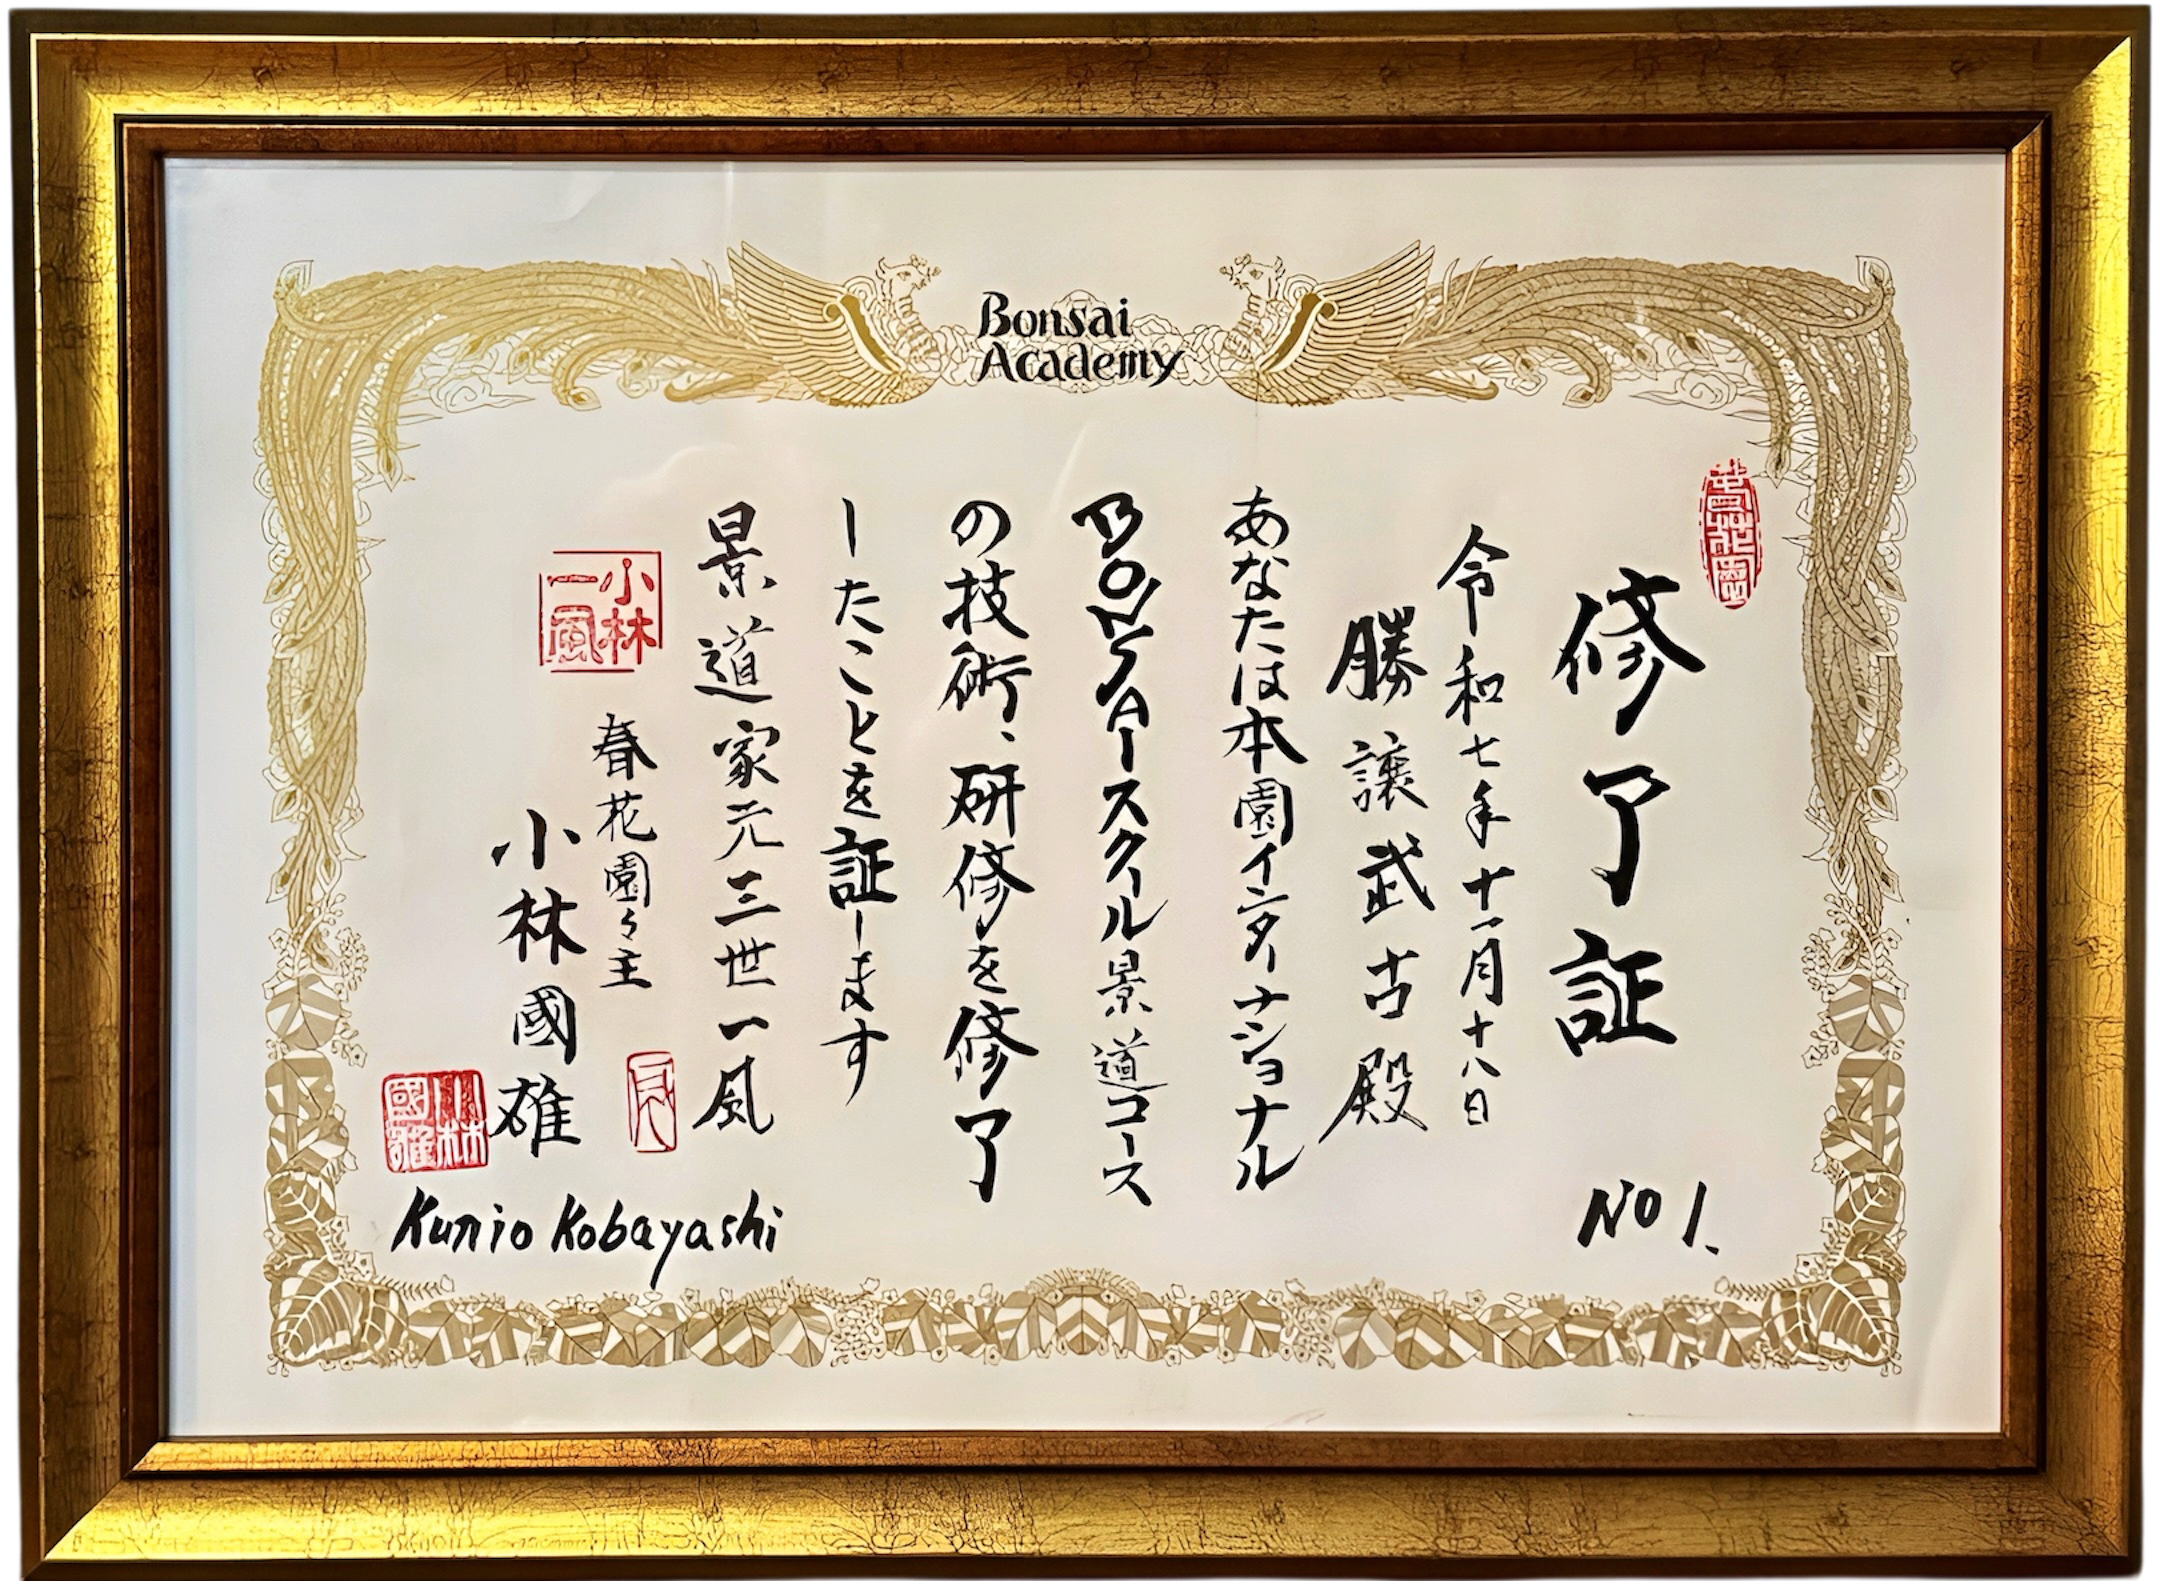 Bonsai
Academy
春花園
修了証
NO 1.
令和七年十一月十八日
勝譲武古殿
あなたは本園インターナショナル
BONSAIースクール景道コース
の技術、研修を修了
したことを証します
景道家元三世一風
小林
一風
春花園々主
小林國雄
小林
國雄
Kunio Kobayashi